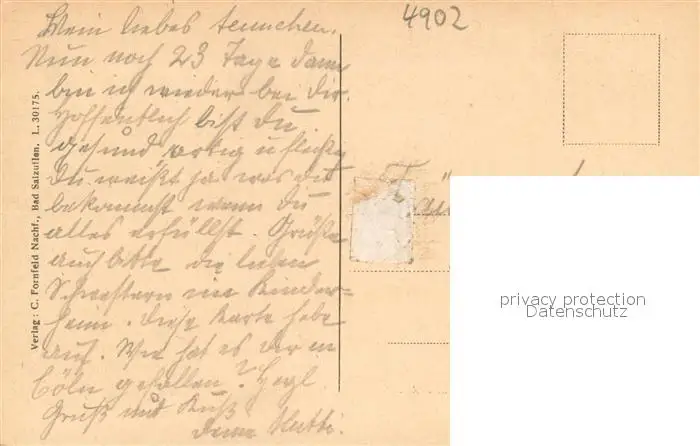 4902
Mein liebes Lennchen.
Nun noch 23 Tage dann
bin ich wieder bei Dir.
Hoffentlich bist Du
gesund, artig u fleißig
Du weißt ja was Du
bekommst wenn Du
alles erfüllst. Grüße
auch bitte die lieben
Schwestern im Kinder-
heim. Diese Karte hebe
auf. Wie hat es dir in
Cöln gefallen? Herzl
Gruß und Kuß
Deine Mutti.
Verlag: C. Fornfeld Nachf., Bad Salzuflen. L. 30175.
privacy protection
Datenschutz